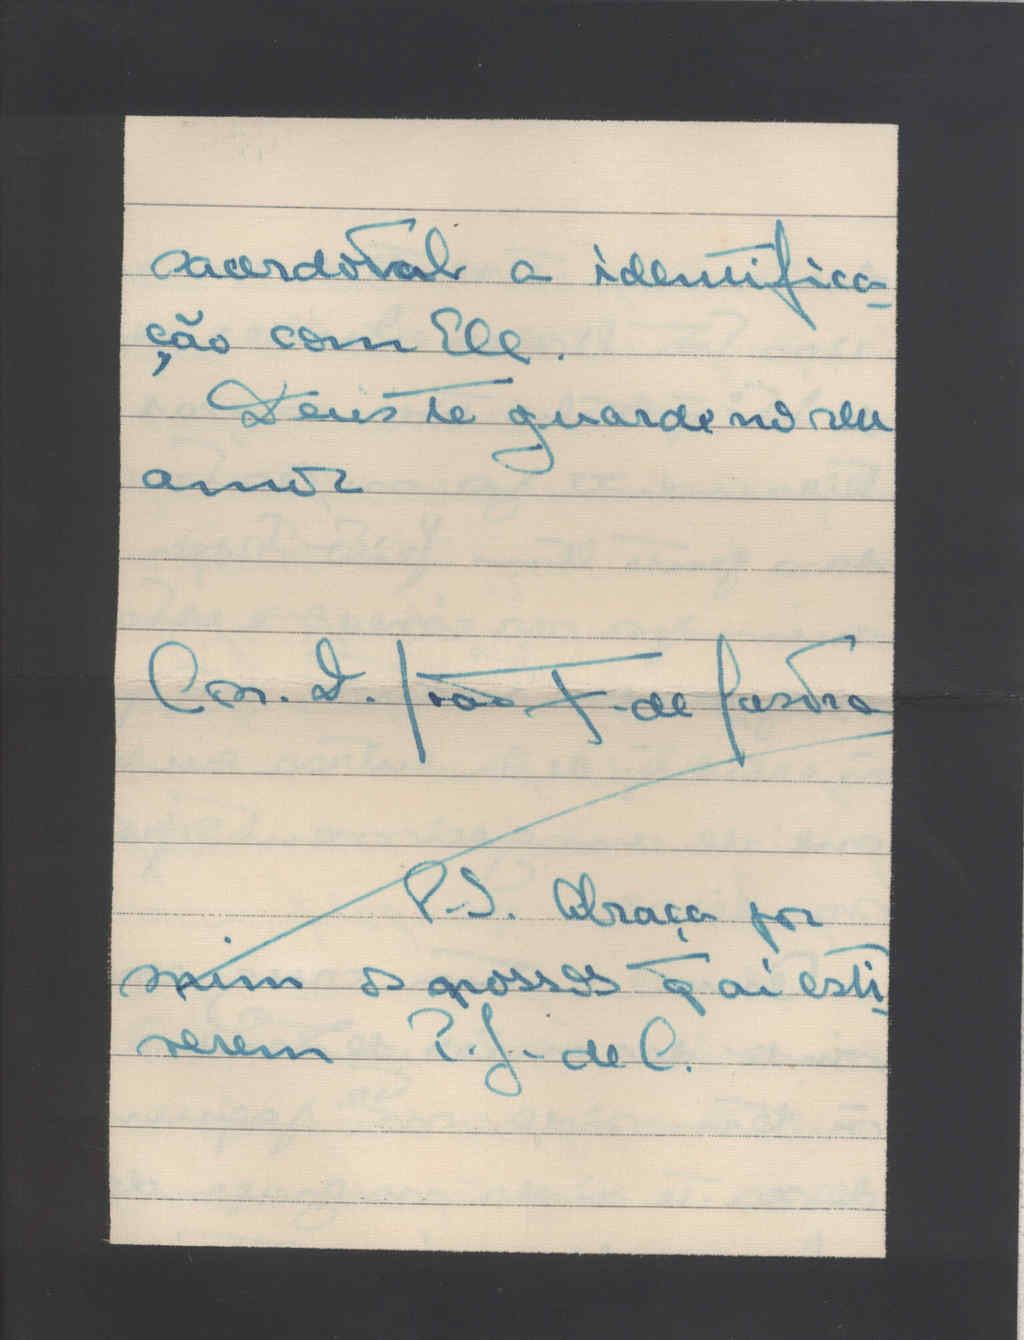 sacerdotal a identifica-
ção com Ele.
Deus te guarde no seu
amor
Con. D. João F. de Castro
P.S. Abraça por
mim os nossos q̄ aí esti-
verem P.J. de C.